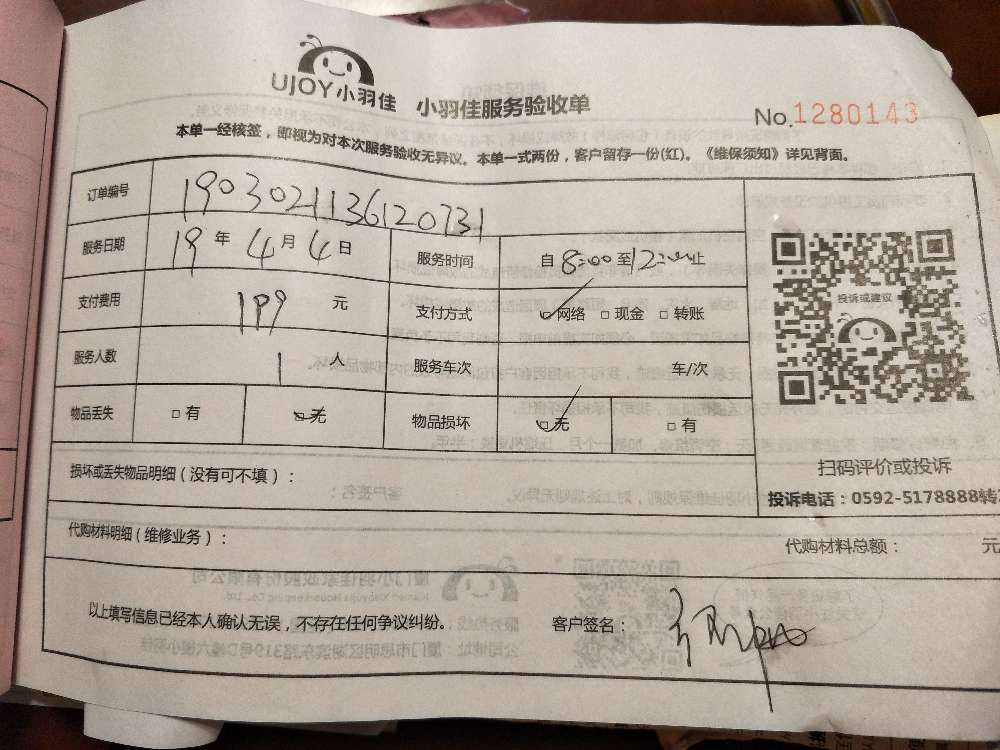 UJOY小羽佳 小羽佳服务验收单 No.1280143
本单一经核签，即视为对本次服务验收无异议。本单一式两份，客户留存一份(红)。《维保须知》详见背面。
订单编号 1903021136120731
服务日期 19 年 4 月 4 日 服务时间 自 8:00 至 12:00 止
支付费用 199 元 支付方式 网络 现金 转账
投诉或建议
服务人数 1 人 服务车次 车/次
物品丢失 有 无 物品损坏 无 有
扫码评价或投诉
损坏或丢失物品明细（没有可不填）：
投诉电话：0592-5178888转
代购材料明细（维修业务）： 代购材料总额： 元
以上填写信息已经本人确认无误，不存在任何争议纠纷。 客户签名：